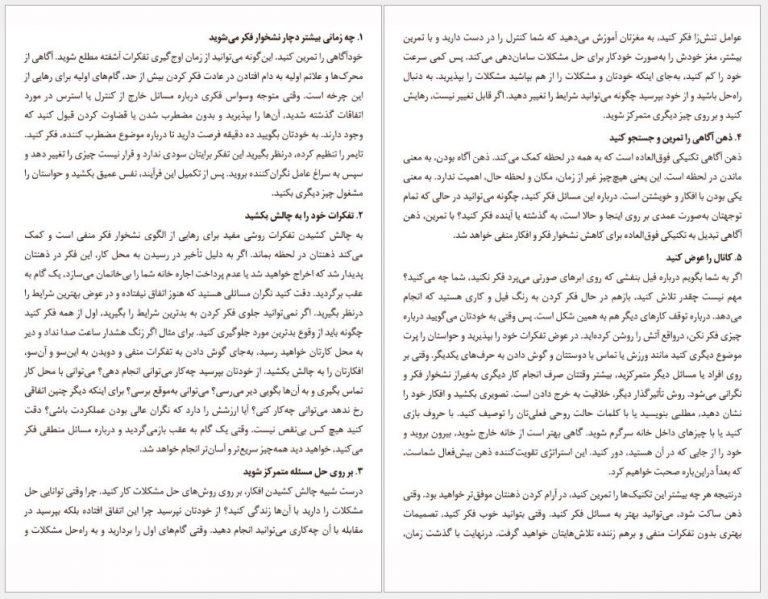 ۱. چه زمانی بیشتر دچار نشخوار فکر می‌شوید
خودآگاهی را تمرین کنید. این‌گونه می‌توانید از زمان اوج‌گیری تفکرات آشفته مطلع شوید. آگاهی از
محرک‌ها و علائم اولیه به دام افتادن در عادت فکر کردن بیش از حد، گام‌های اولیه برای رهایی از
این چرخه است. وقتی متوجه وسواس فکری درباره مسائل خارج از کنترل یا استرس در مورد
اتفاقات گذشته شدید، آن‌ها را بپذیرید و بدون مضطرب شدن یا قضاوت کردن قبول کنید که
وجود دارند. به خودتان بگویید ده دقیقه فرصت دارید تا درباره موضوع مضطرب کننده، فکر کنید.
تایمر را تنظیم کرده، درنظر بگیرید این تفکر برایتان سودی ندارد و قرار نیست چیزی را تغییر دهد و
سپس به سراغ عامل نگران‌کننده بروید. پس از تکمیل این فرآیند، نفس عمیق بکشید و حواستان را
مشغول چیز دیگری بکنید.
۲. تفکرات خود را به چالش بکشید
به چالش کشیدن تفکرات روشی مفید برای رهایی از الگوی نشخوار فکر منفی است و کمک
می‌کند ذهنتان در لحظه بماند. اگر به دلیل تأخیر در رسیدن به محل کار، این فکر در ذهنتان
پدیدار شد که اخراج خواهید شد یا عدم پرداخت اجاره خانه شما را بی‌خانمان می‌سازد، یک گام به
عقب برگردید. دقت کنید نگران مسائلی هستید که هنوز اتفاق نیفتاده و در عوض بهترین شرایط را
درنظر بگیرید. اگر نمی‌توانید جلوی فکر کردن به بدترین شرایط را بگیرید، اول از همه فکر کنید
چگونه باید از وقوع بدترین مورد جلوگیری کنید. برای مثال اگر زنگ هشدار ساعت صدا نداد و دیر
به محل کارتان خواهید رسید، به‌جای گوش دادن به تفکرات منفی و دویدن به این‌سو و آن‌سو،
افکارتان را به چالش بکشید. از خودتان بپرسید چه‌کار می‌توانی انجام دهی؟ می‌توانی با محل کار
تماس بگیری و به آن‌ها بگویی دیر می‌رسی؟ می‌توانی به‌موقع برسی؟ برای اینکه دیگر چنین اتفاقی
رخ ندهد می‌توانی چه‌کار کنی؟ آیا ارزشش را دارد که نگران عالی بودن عملکردت باشی؟ دقت
کنید هیچ کس بی‌نقص نیست. وقتی یک گام به عقب بازمی‌گردید و درباره مسائل منطقی فکر
می‌کنید، خواهید دید همه‌چیز سریع‌تر و آسان‌تر انجام خواهد شد.
۳. بر روی حل مسئله متمرکز شوید
درست شبیه چالش کشیدن افکار، بر روی روش‌های حل مشکلات کار کنید. چرا وقتی توانایی حل
مشکلات را دارید با آن‌ها زندگی کنید؟ از خودتان نپرسید چرا این اتفاق افتاده بلکه بپرسید در
مقابله با آن چه‌کاری می‌توانید انجام دهید. وقتی گام‌های اول را بردارید و به راه‌حل مشکلات و
عوامل تنش‌زا فکر کنید، به مغزتان آموزش می‌دهید که شما کنترل را در دست دارید و با تمرین
بیشتر، مغز خودش را به‌صورت خودکار برای حل مشکلات سامان‌دهی می‌کند. پس کمی سرعت
خود را کم کنید، به‌جای اینکه خودتان و مشکلات را از هم بپاشید مشکلات را بپذیرید. به دنبال
راه‌حل باشید و از خود بپرسید چگونه می‌توانید شرایط را تغییر دهید. اگر قابل تغییر نیست، رهایش
کنید و بر روی چیز دیگری متمرکز شوید.
۴. ذهن آگاهی را تمرین و جستجو کنید
ذهن آگاهی تکنیکی فوق‌العاده است که به همه در لحظه کمک می‌کند. ذهن آگاه بودن، به معنی
ماندن در لحظه است. این یعنی هیچ‌چیز غیر از زمان، مکان و لحظه حال، اهمیت ندارد. به معنی
یکی بودن با افکار و خویشتن است. درباره این مسائل فکر کنید، چگونه می‌توانید در حالی که تمام
توجهتان به‌صورت عمدی بر روی اینجا و حالا است، به گذشته یا آینده فکر کنید؟ با تمرین، ذهن
آگاهی تبدیل به تکنیکی فوق‌العاده برای کاهش نشخوار فکر و افکار منفی خواهد شد.
۵. کانال را عوض کنید
اگر به شما بگویم درباره فیل بنفشی که روی ابرهای صورتی می‌پرد فکر نکنید، شما چه می‌کنید؟
مهم نیست چقدر تلاش کنید، بازهم در حال فکر کردن به رنگ فیل و کاری هستید که انجام
می‌دهد. درباره توقف کارهای دیگر هم به همین شکل است. پس وقتی به خودتان می‌گویید درباره
چیزی فکر نکن، درواقع آتش را روشن کرده‌اید. در عوض تفکرات خود را بپذیرید و حواستان را پرت
موضوع دیگری کنید مانند ورزش یا تماس با دوستتان و گوش دادن به حرف‌های یکدیگر. وقتی بر
روی افراد یا مسائل دیگر متمرکزید، بیشتر وقتتان صرف انجام کار دیگری به‌غیراز نشخوار فکر و
نگرانی می‌شود. روش تأثیرگذار دیگر، خلاقیت به خرج دادن است. تصویری بکشید و افکار خود را
نشان دهید، مطلبی بنویسید یا با کلمات حالت روحی فعلی‌تان را توصیف کنید. با حروف بازی
کنید یا با چیزهای داخل خانه سرگرم شوید. گاهی بهتر است از خانه خارج شوید، بیرون بروید و
خود را از جایی که در آن هستید، دور کنید. این استراتژی تقویت‌کننده ذهن بیش‌فعال شماست،
که بعداً دراین‌باره صحبت خواهیم کرد.
درنتیجه هر چه بیشتر این تکنیک‌ها را تمرین کنید، در آرام کردن ذهنتان موفق‌تر خواهید بود. وقتی
ذهن ساکت شود، می‌توانید بهتر به مسائل فکر کنید. وقتی بتوانید خوب فکر کنید، تصمیمات
بهتری بدون تفکرات منفی و برهم زننده تلاش‌هایتان خواهید گرفت. درنهایت با گذشت زمان،